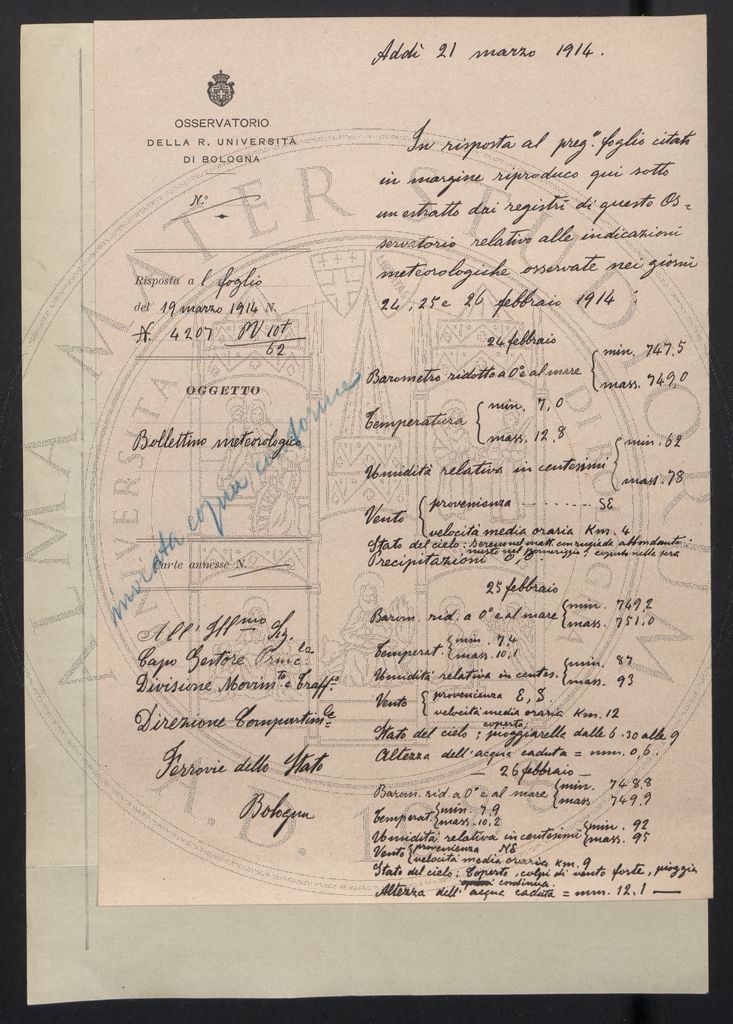 Addì 21 marzo 1914.
OSSERVATORIO
DELLA R. UNIVERSITÀ
DI BOLOGNA
N.º
Risposta al foglio
del 19 marzo 1914 N.
N. 4207 PV 101
62
OGGETTO
Bollettino meteorologico
inviata copia conforme
Carte annesse N.
All' Ill.mo Sig.
Capo Gestore Princ.le
Divisione Movim.to e Traff.o
Direzione Compartim.le
Ferrovie dello Stato
Bologna
In risposta al preg.º foglio citato
in margine riproduco qui sotto
un estratto dai registri di questo Os=
servatorio relativo alle indicazioni
meteorologiche osservate nei giorni
24, 25 e 26 febbraio 1914:
24 febbraio
Barometro ridotto a 0° e al mare { min. 747.5
mass. 749.0
Temperatura { min. 7,0
mass. 12.8
Umidità relativa in centesimi { min. 62
mass. 78
Vento { provenienza ......... SE
velocità media oraria Km. 4
Stato del cielo: sereno nel matt. con rugiada abbondante;
misto nel pomeriggio; coperto nella sera
Precipitazioni 0,0
25 febbraio
Barom. rid. a 0° e al mare { min. 749,2
mass. 751,0
Temperat. { min. 7.4
mass. 10,1
Umidità relativa in centes. { min. 87
mass. 93
Vento { provenienza E, S.
velocità media oraria Km. 12
Stato del cielo: coperto; pioggiarelle dalle 6.30 alle 9
Altezza dell'acqua caduta = mm. 0,6.
— 26 febbraio —
Barom. rid. a 0° e al mare { min. 748.8
mass 749.9
Temperat. { min. 7.9
mass. 10,2
Umidità relativa in centesimi { min. 92
mass. 95
Vento { provenienza NE
velocità media oraria Km. 9
Stato del cielo: Coperto, colpi di vento forte, pioggia
continua.
Altezza dell'acqua caduta = mm. 12.1 —
ALMA MATER STUDIORUM
UNIVERSITA
A.D. 1088